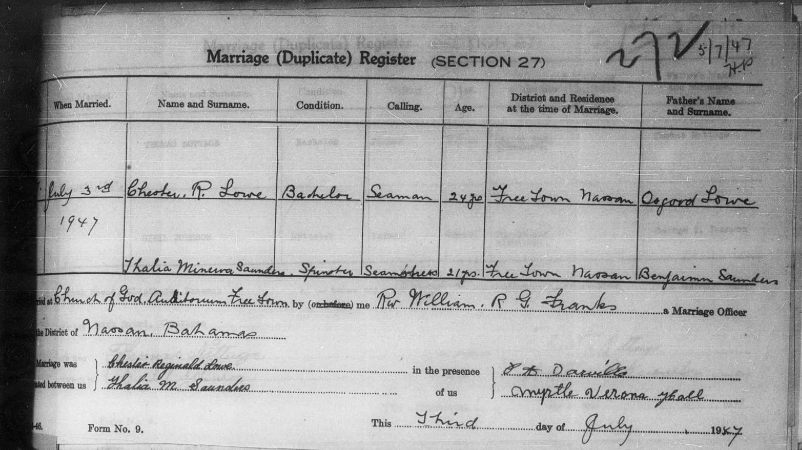 Marriage (Duplicate) Register (SECTION 27) 272 5/7/47
When Married. Name and Surname. Condition. Calling. Age. District and Residence at the time of Marriage. Father's Name and Surname.
July 3rd Chester. R. Lowe Bachelor Seaman 24 yrs Free Town Nassau Osgood Lowe
1947
Thalia Minerva Saunders. Spinster Seamstress 21 yrs. Free Town Nassau Benjaimn Saunders
at Church of God. Auditorium Free Town. by (or before) me Rev William. R G Franks a Marriage Officer
the District of Nassau, Bahamas
Marriage was Chester Reginald Lowe in the presence
between us Thalia M. Saunders of us Myrtle Verona Hall
Form No. 9. This Third day of July 1947